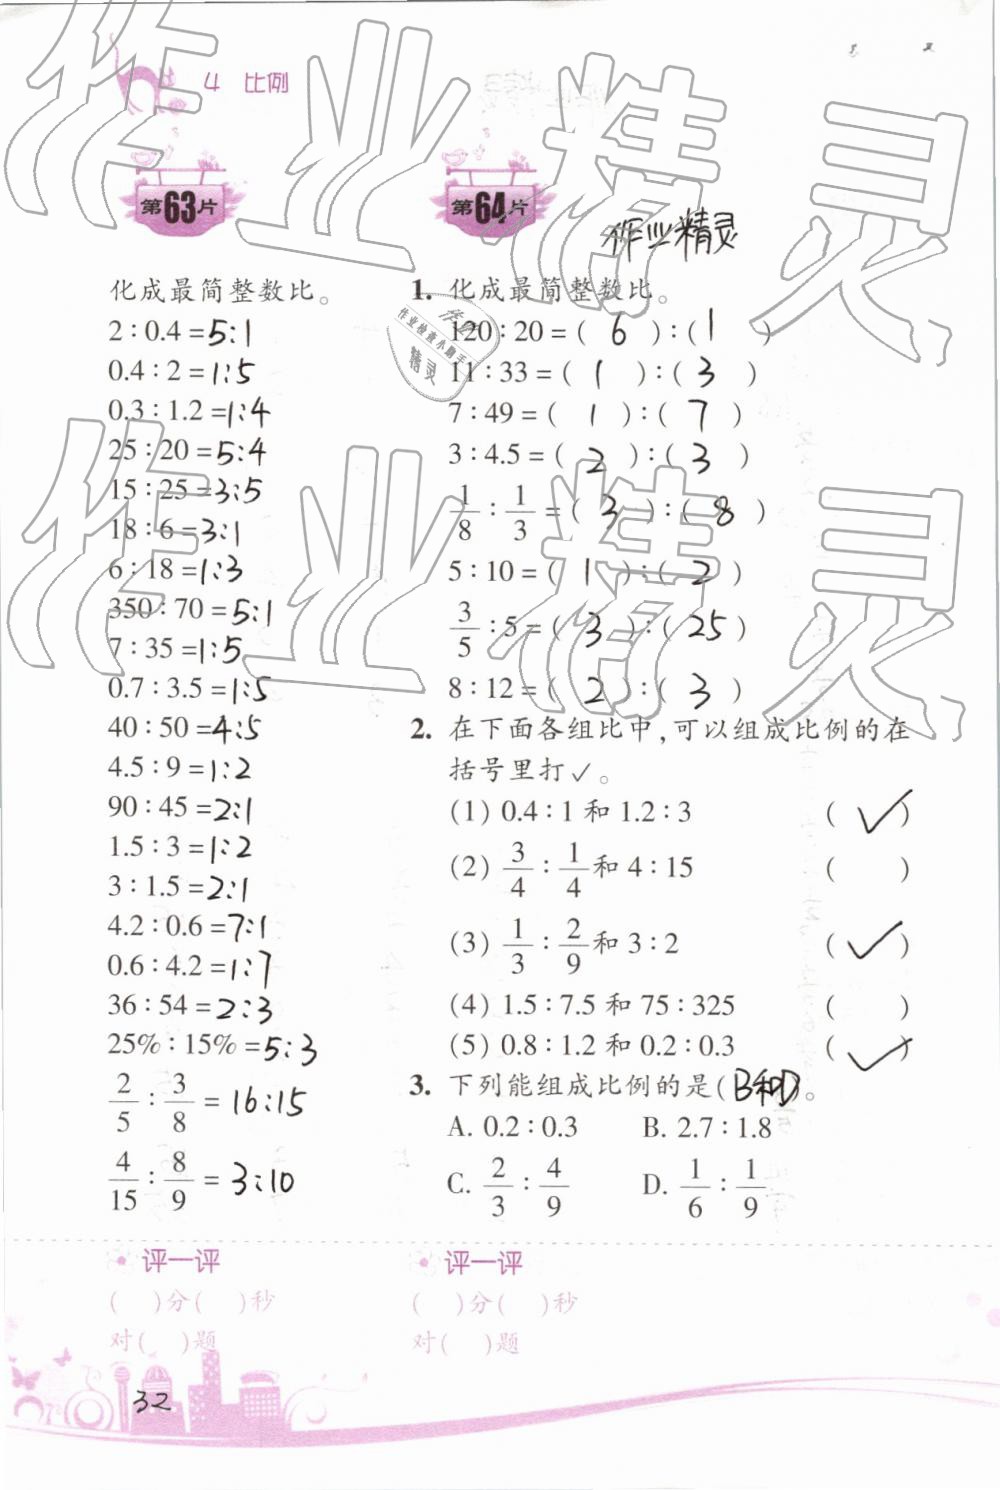 4 比例
第63片
化成最简整数比。
2:0.4=5:1
0.4:2=1:5
0.3:1.2=1:4
25:20=5:4
15:25=3:5
18:6=3:1
6:18=1:3
350:70=5:1
7:35=1:5
0.7:3.5=1:5
40:50=4:5
4.5:9=1:2
90:45=2:1
1.5:3=1:2
3:1.5=2:1
4.2:0.6=7:1
0.6:4.2=1:7
36:54=2:3
25%:15%=5:3
2/5:3/8=16:15
4/15:8/9=3:10
评一评
( )分( )秒
对( )题
第64片
作业精灵
1. 化成最简整数比。
120:20=(6):(1)
11:33=(1):(3)
7:49=(1):(7)
3:4.5=(2):(3)
1/8:1/3=(3):(8)
5:10=(1):(2)
3/5:5=(3):(25)
8:12=(2):(3)
2. 在下面各组比中,可以组成比例的在
括号里打✓。
(1) 0.4:1 和 1.2:3 (✓)
(2) 3/4:1/4 和 4:15 ( )
(3) 1/3:2/9 和 3:2 (✓)
(4) 1.5:7.5 和 75:325 ( )
(5) 0.8:1.2 和 0.2:0.3 (✓)
3. 下列能组成比例的是(B和D)。
A. 0.2:0.3 B. 2.7:1.8
C. 2/3:4/9 D. 1/6:1/9
评一评
( )分( )秒
对( )题
32
作业精灵
作业精灵
作业检查小助手
精灵